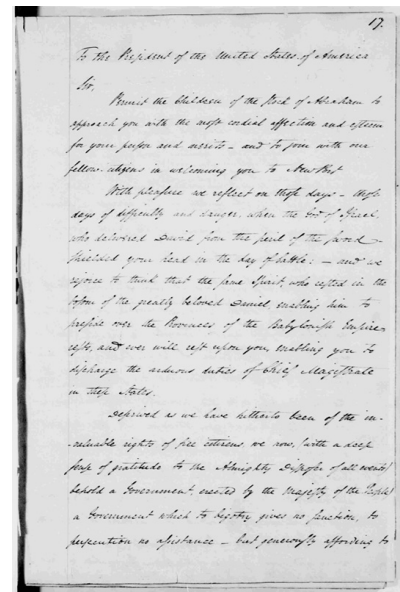 17.
To the President of the United States of America
Sir,
Permit the Children of the Stock of Abraham to
approach you with the most cordial affection and esteem
for your person and merits – and to join with our
fellow-citizens in welcoming you to New Port.
With pleasure we reflect on those days – those
days of difficulty and danger, when the God of Israel,
who delivered David from the peril of the sword –
shielded your head in the day of battle: – and we
rejoice to think that the same Spirit, who rested in the
bosom of the greatly beloved Daniel, enabling him to
preside over the Provinces of the Babylonish Empire,
rests, and ever will rest upon you, enabling you to
discharge the arduous duties of Chief Magistrate
in these States.
Deprived as we have hitherto been of the in-
-valuable rights of free citizens, we now, (with a deep
sense of gratitude to the Almighty Disposer of all events)
behold a Government, erected by the Majesty of the People,
a Government which to bigotry gives no sanction, to
persecution no assistance – but generously affording to